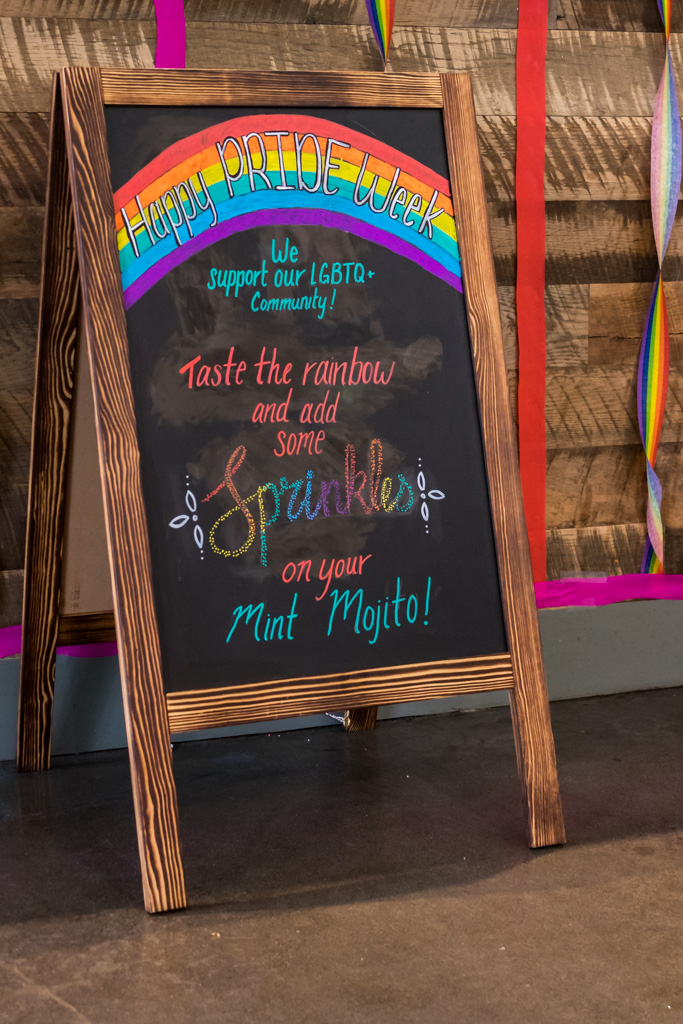 Happy PRIDE Week
We
support our LGBTQ+
Community!
Taste the rainbow
and add
some
Sprinkles
on your
Mint Mojito!